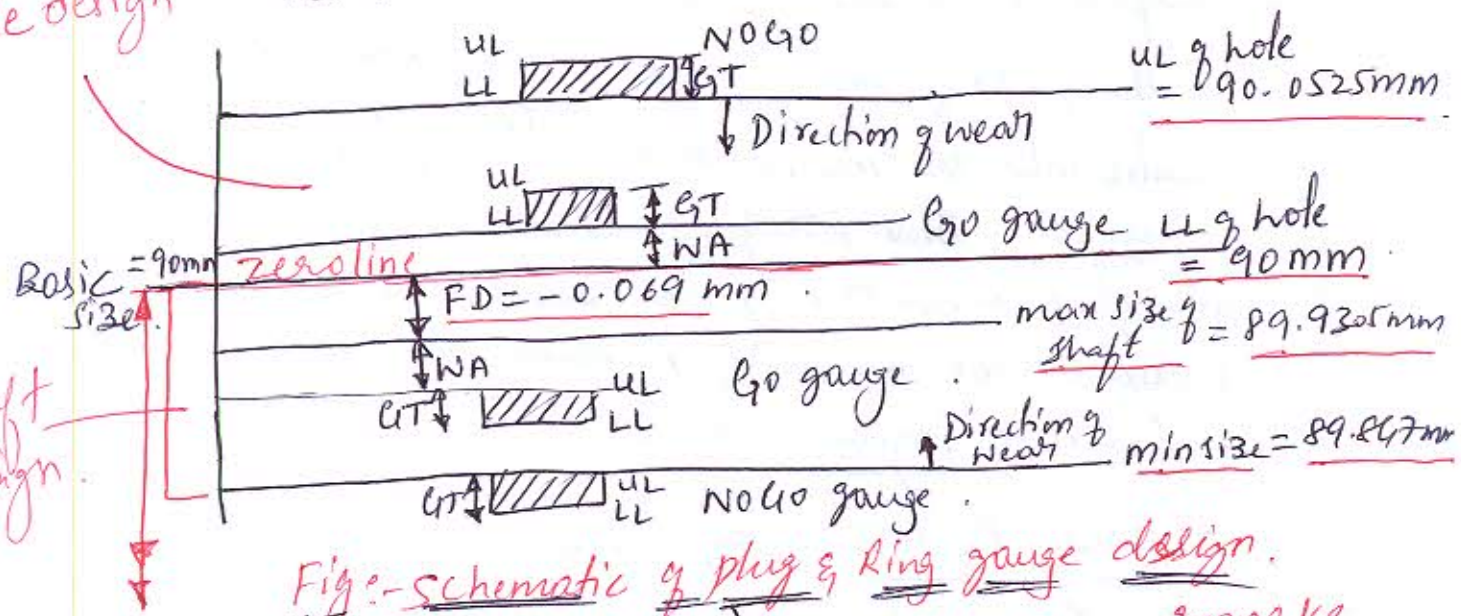 e design
UL NO GO
LL GT
UL of hole
= 90.0525mm
Direction of wear
UL
LL GT
Go gauge LL of hole
WA = 90mm
Basic size = 90mm zero line
FD = -0.069 mm.
max size of shaft = 89.9305mm
WA
Go gauge.
GT UL
LL
Direction of wear
min size = 89.847mm
GT UL
LL
NOGO gauge.
Fig:- Schematic of plug & Ring gauge design.